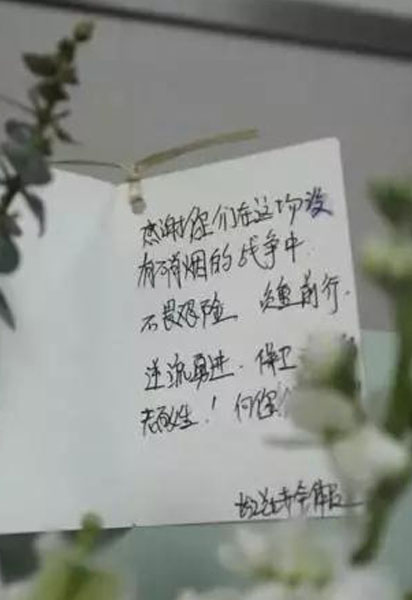 感谢您们在这场没
有硝烟的战争中
不畏艰险 前行.
逆流勇进.保卫
老百姓!向您